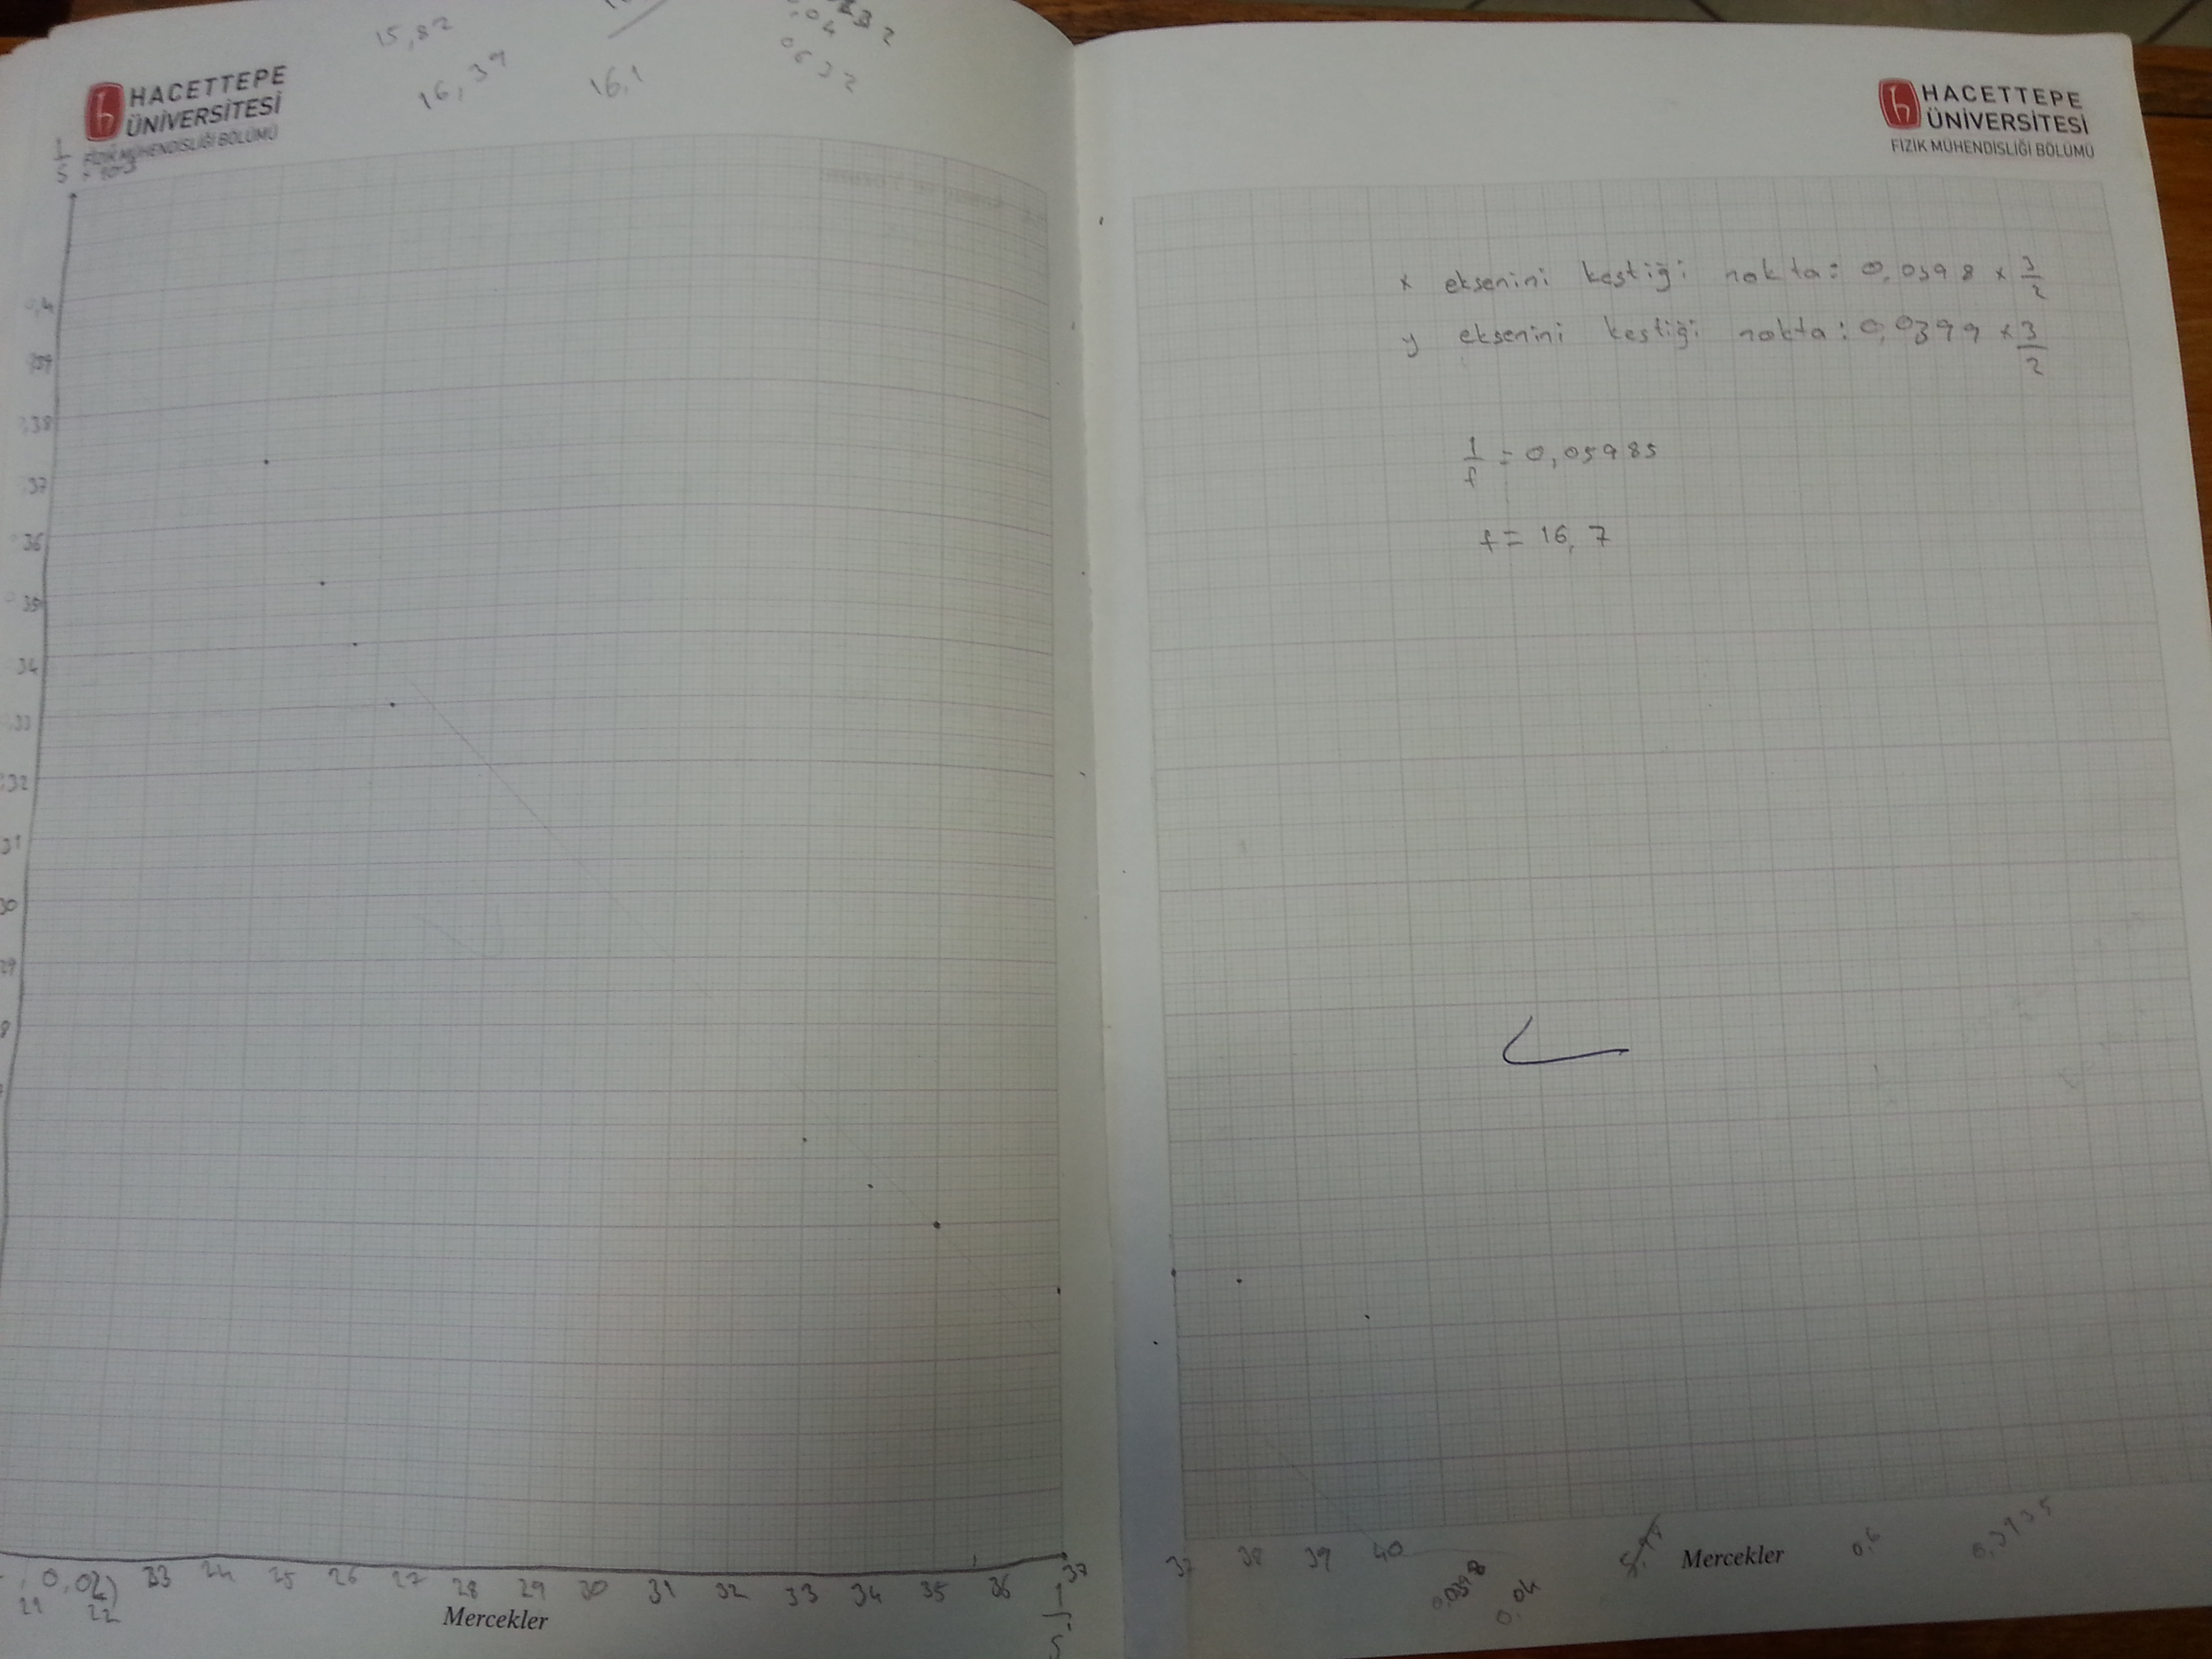 15,82
16,39
16,1
0632
HACETTEPE
ÜNİVERSİTESİ
FİZİK MÜHENDİSLİĞİ BÖLÜMÜ
1
S
38
37
36
35
34
33
32
31
30
29
33 24 25 26 27 28 29 30 31 32 33 34 35 36 37
21 22
1
S'
Mercekler
HACETTEPE
ÜNİVERSİTESİ
FİZİK MÜHENDİSLİĞİ BÖLÜMÜ
x eksenini kestiği nokta: 0,0398 x 3/2
y eksenini kestiği nokta: 0,0399 x 3/2
1/f = 0,05985
f = 16,7
37 38 39 40
0,04
Mercekler
0,6